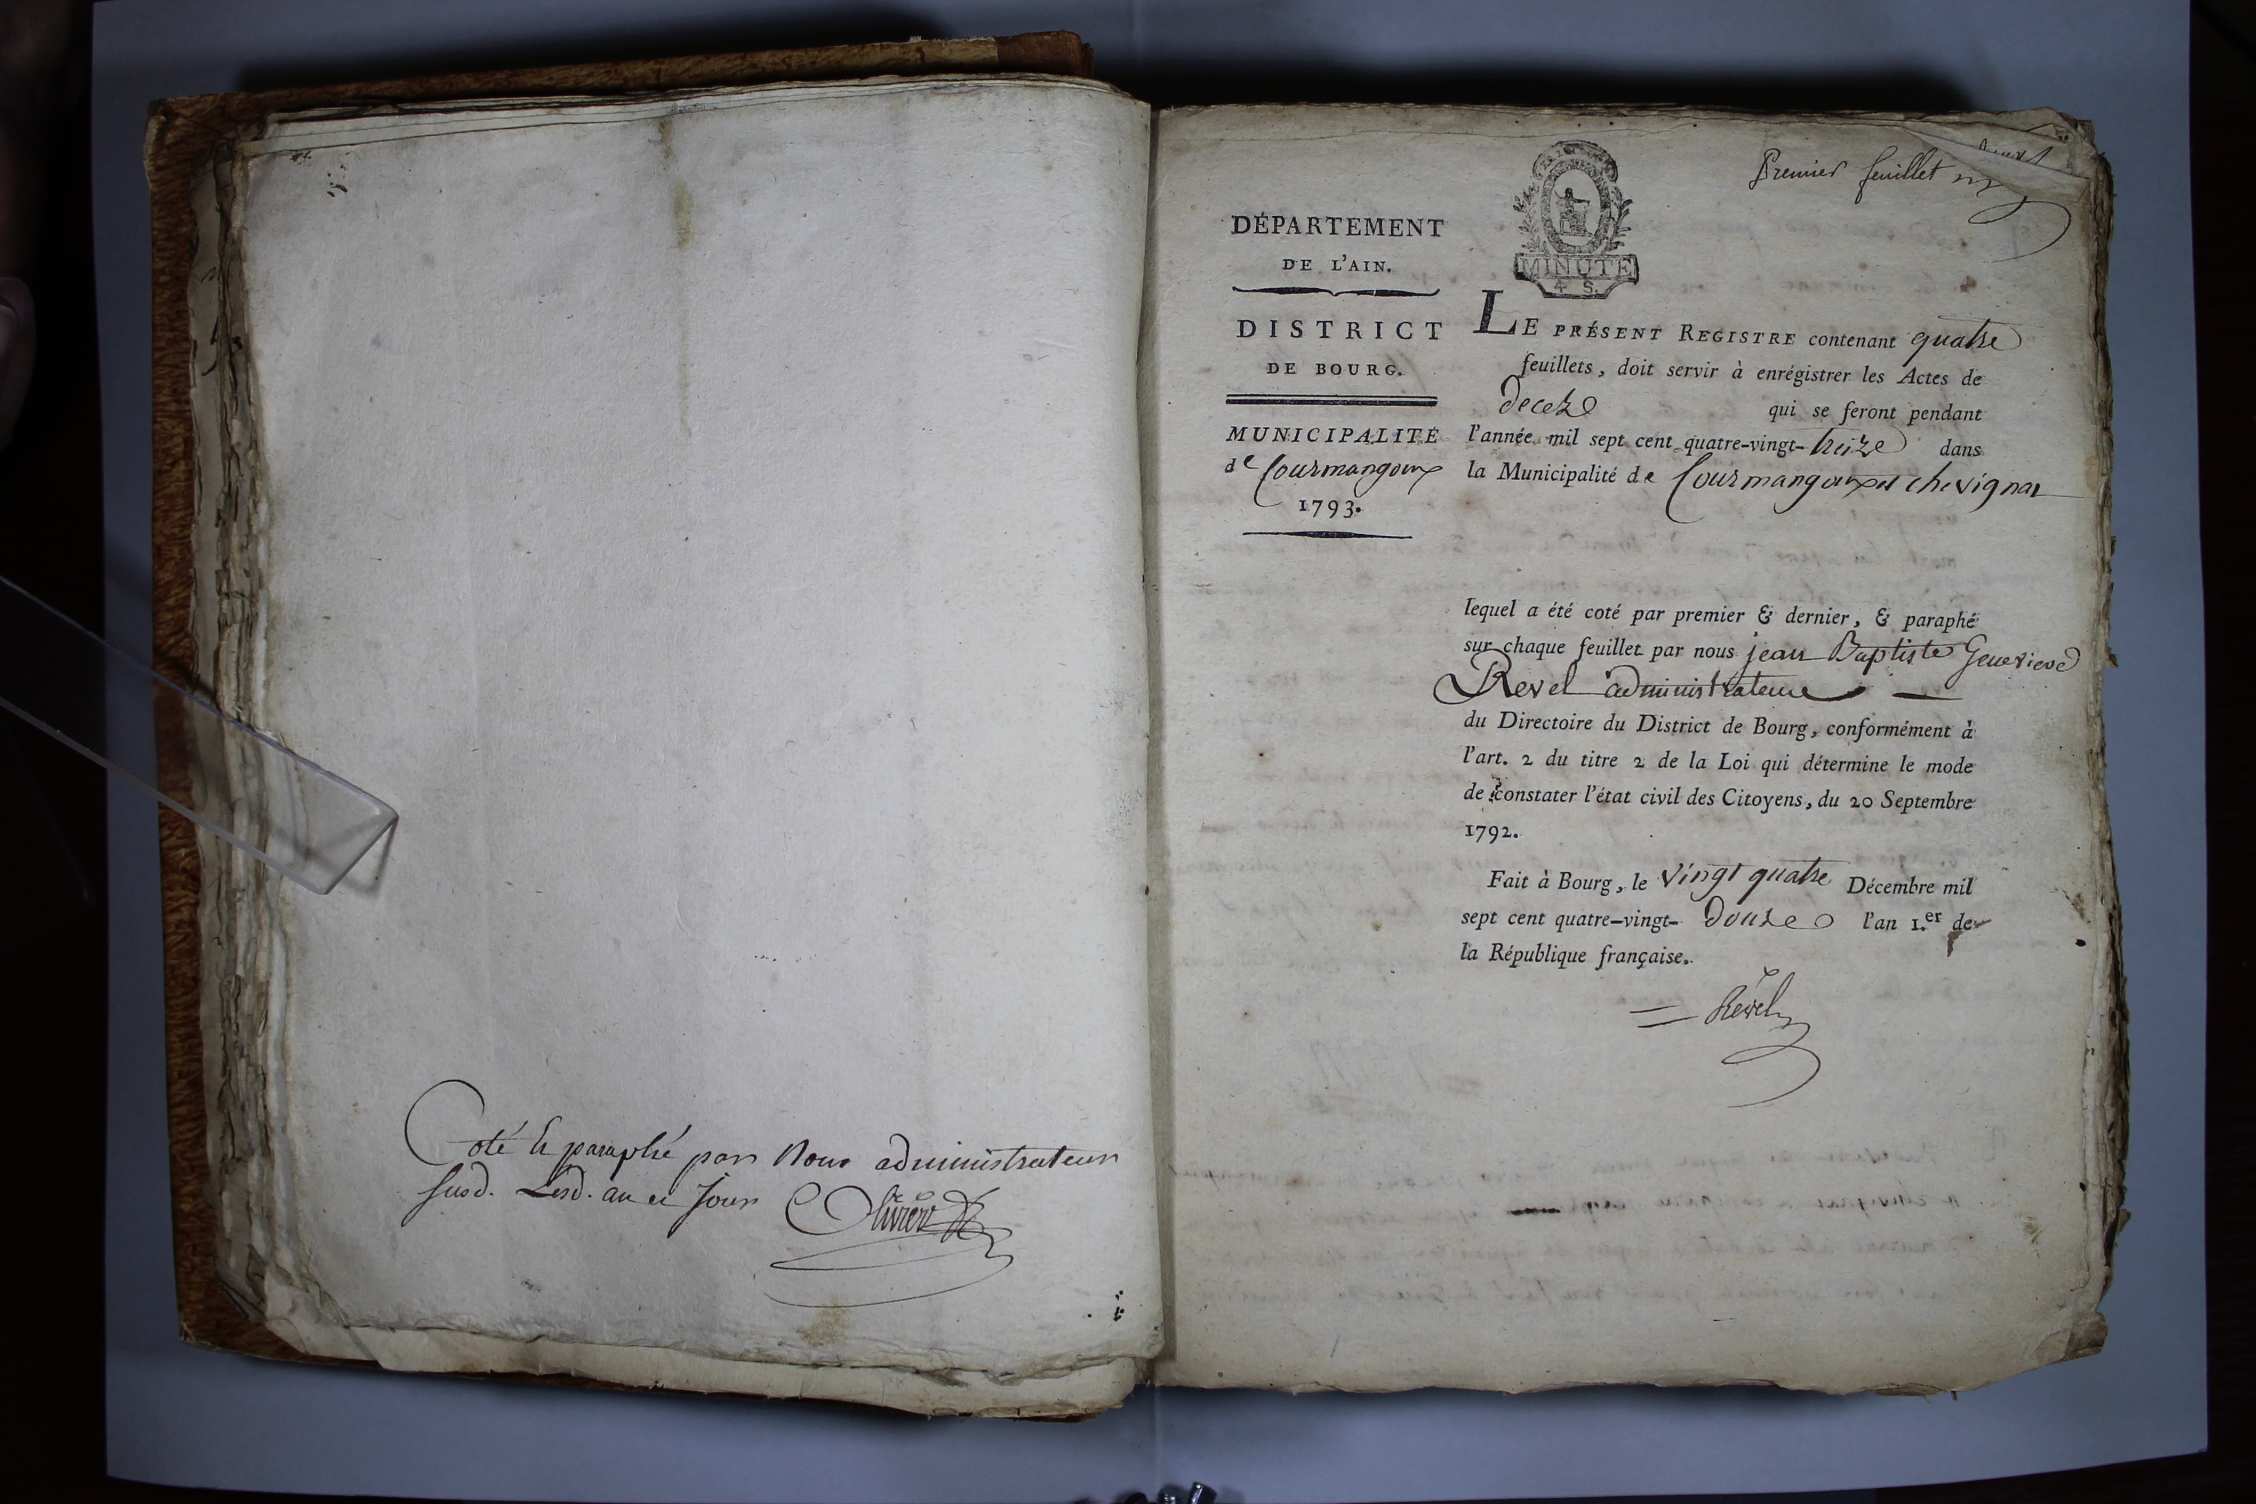 Coté & paraphé par Nous administrateur
susd. Lesd. an et jour
Premier feuillet
MINUTE
4 S.
DÉPARTEMENT
DE L'AIN.
DISTRICT
DE BOURG.
MUNICIPALITÉ
de Courmangoux
1793.
LE PRÉSENT REGISTRE contenant quatre
feuillets, doit servir à enrégistrer les Actes de
decez qui se feront pendant
l'année mil sept cent quatre-vingt-treize dans
la Municipalité de Courmangoux et chevignat
lequel a été coté par premier & dernier, & paraphé
sur chaque feuillet par nous jean Baptiste Genevieve
Revel administrateur
du Directoire du District de Bourg, conformément à
l'art. 2 du titre 2 de la Loi qui détermine le mode
de constater l'état civil des Citoyens, du 20 Septembre
1792.
Fait à Bourg, le Vingt quatre Décembre mil
sept cent quatre-vingt-douze l'an 1.er de
la République française.
Revel